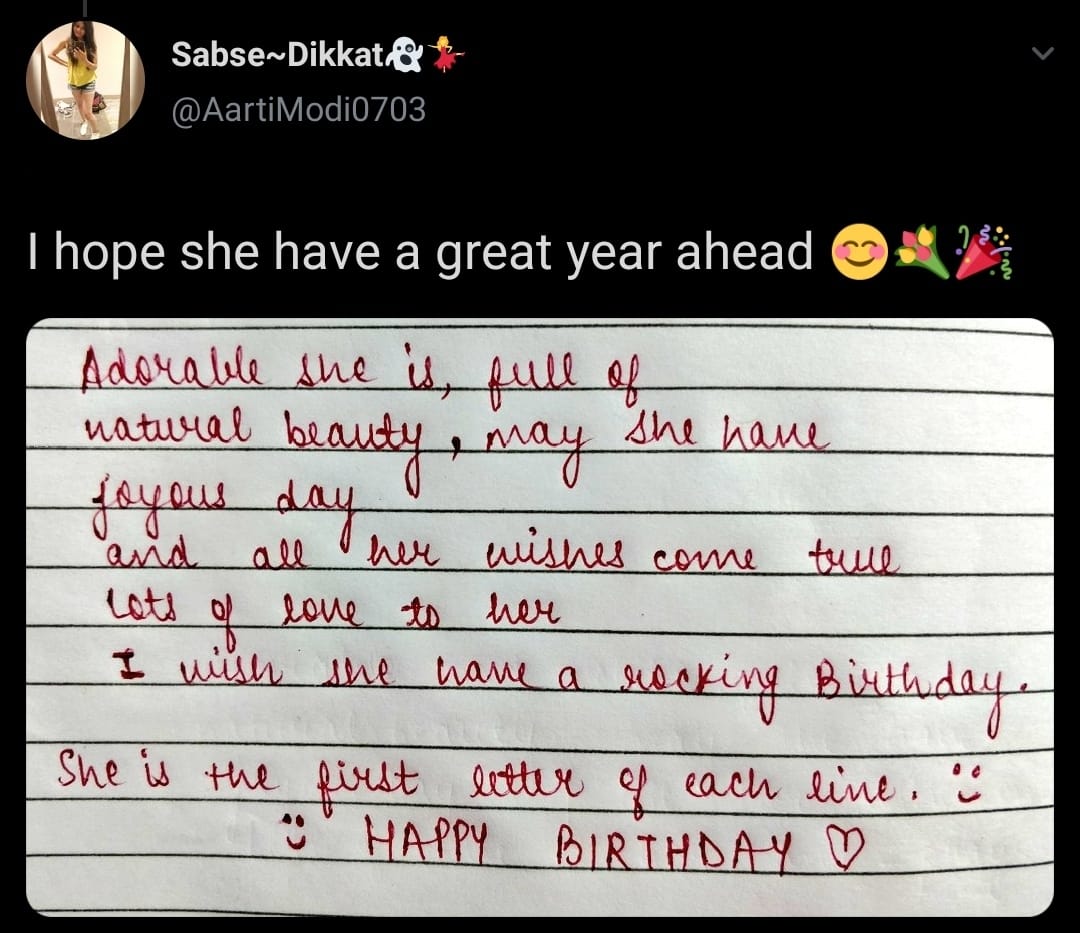 Sabse~Dikkat👻💃
@AartiModi0703
I hope she have a great year ahead 😊💐🎉
Adorable she is, full of
natural beauty, may she have
joyous day
and all her wishes come true
lots of love to her
I wish she have a rocking Birthday.
She is the first letter of each line. :)
:) HAPPY BIRTHDAY ♡